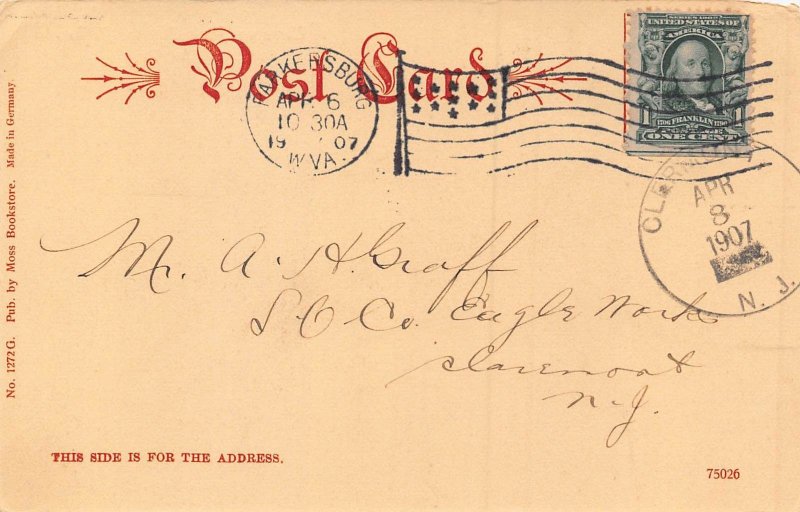 Post Card
PARKERSBURG
APR 6
10 30A
19 07
W.VA.
SERIES 1902
UNITED STATES OF
AMERICA
1706 FRANKLIN 1790
1 1
ONE CENT
APR
8
1907
N. J.
Mr. A. H. Graff
S. O. Co. Eagle Works
Claremont
N. J.
No. 1272 G. Pub. by Moss Bookstore. Made in Germany
THIS SIDE IS FOR THE ADDRESS.
75026